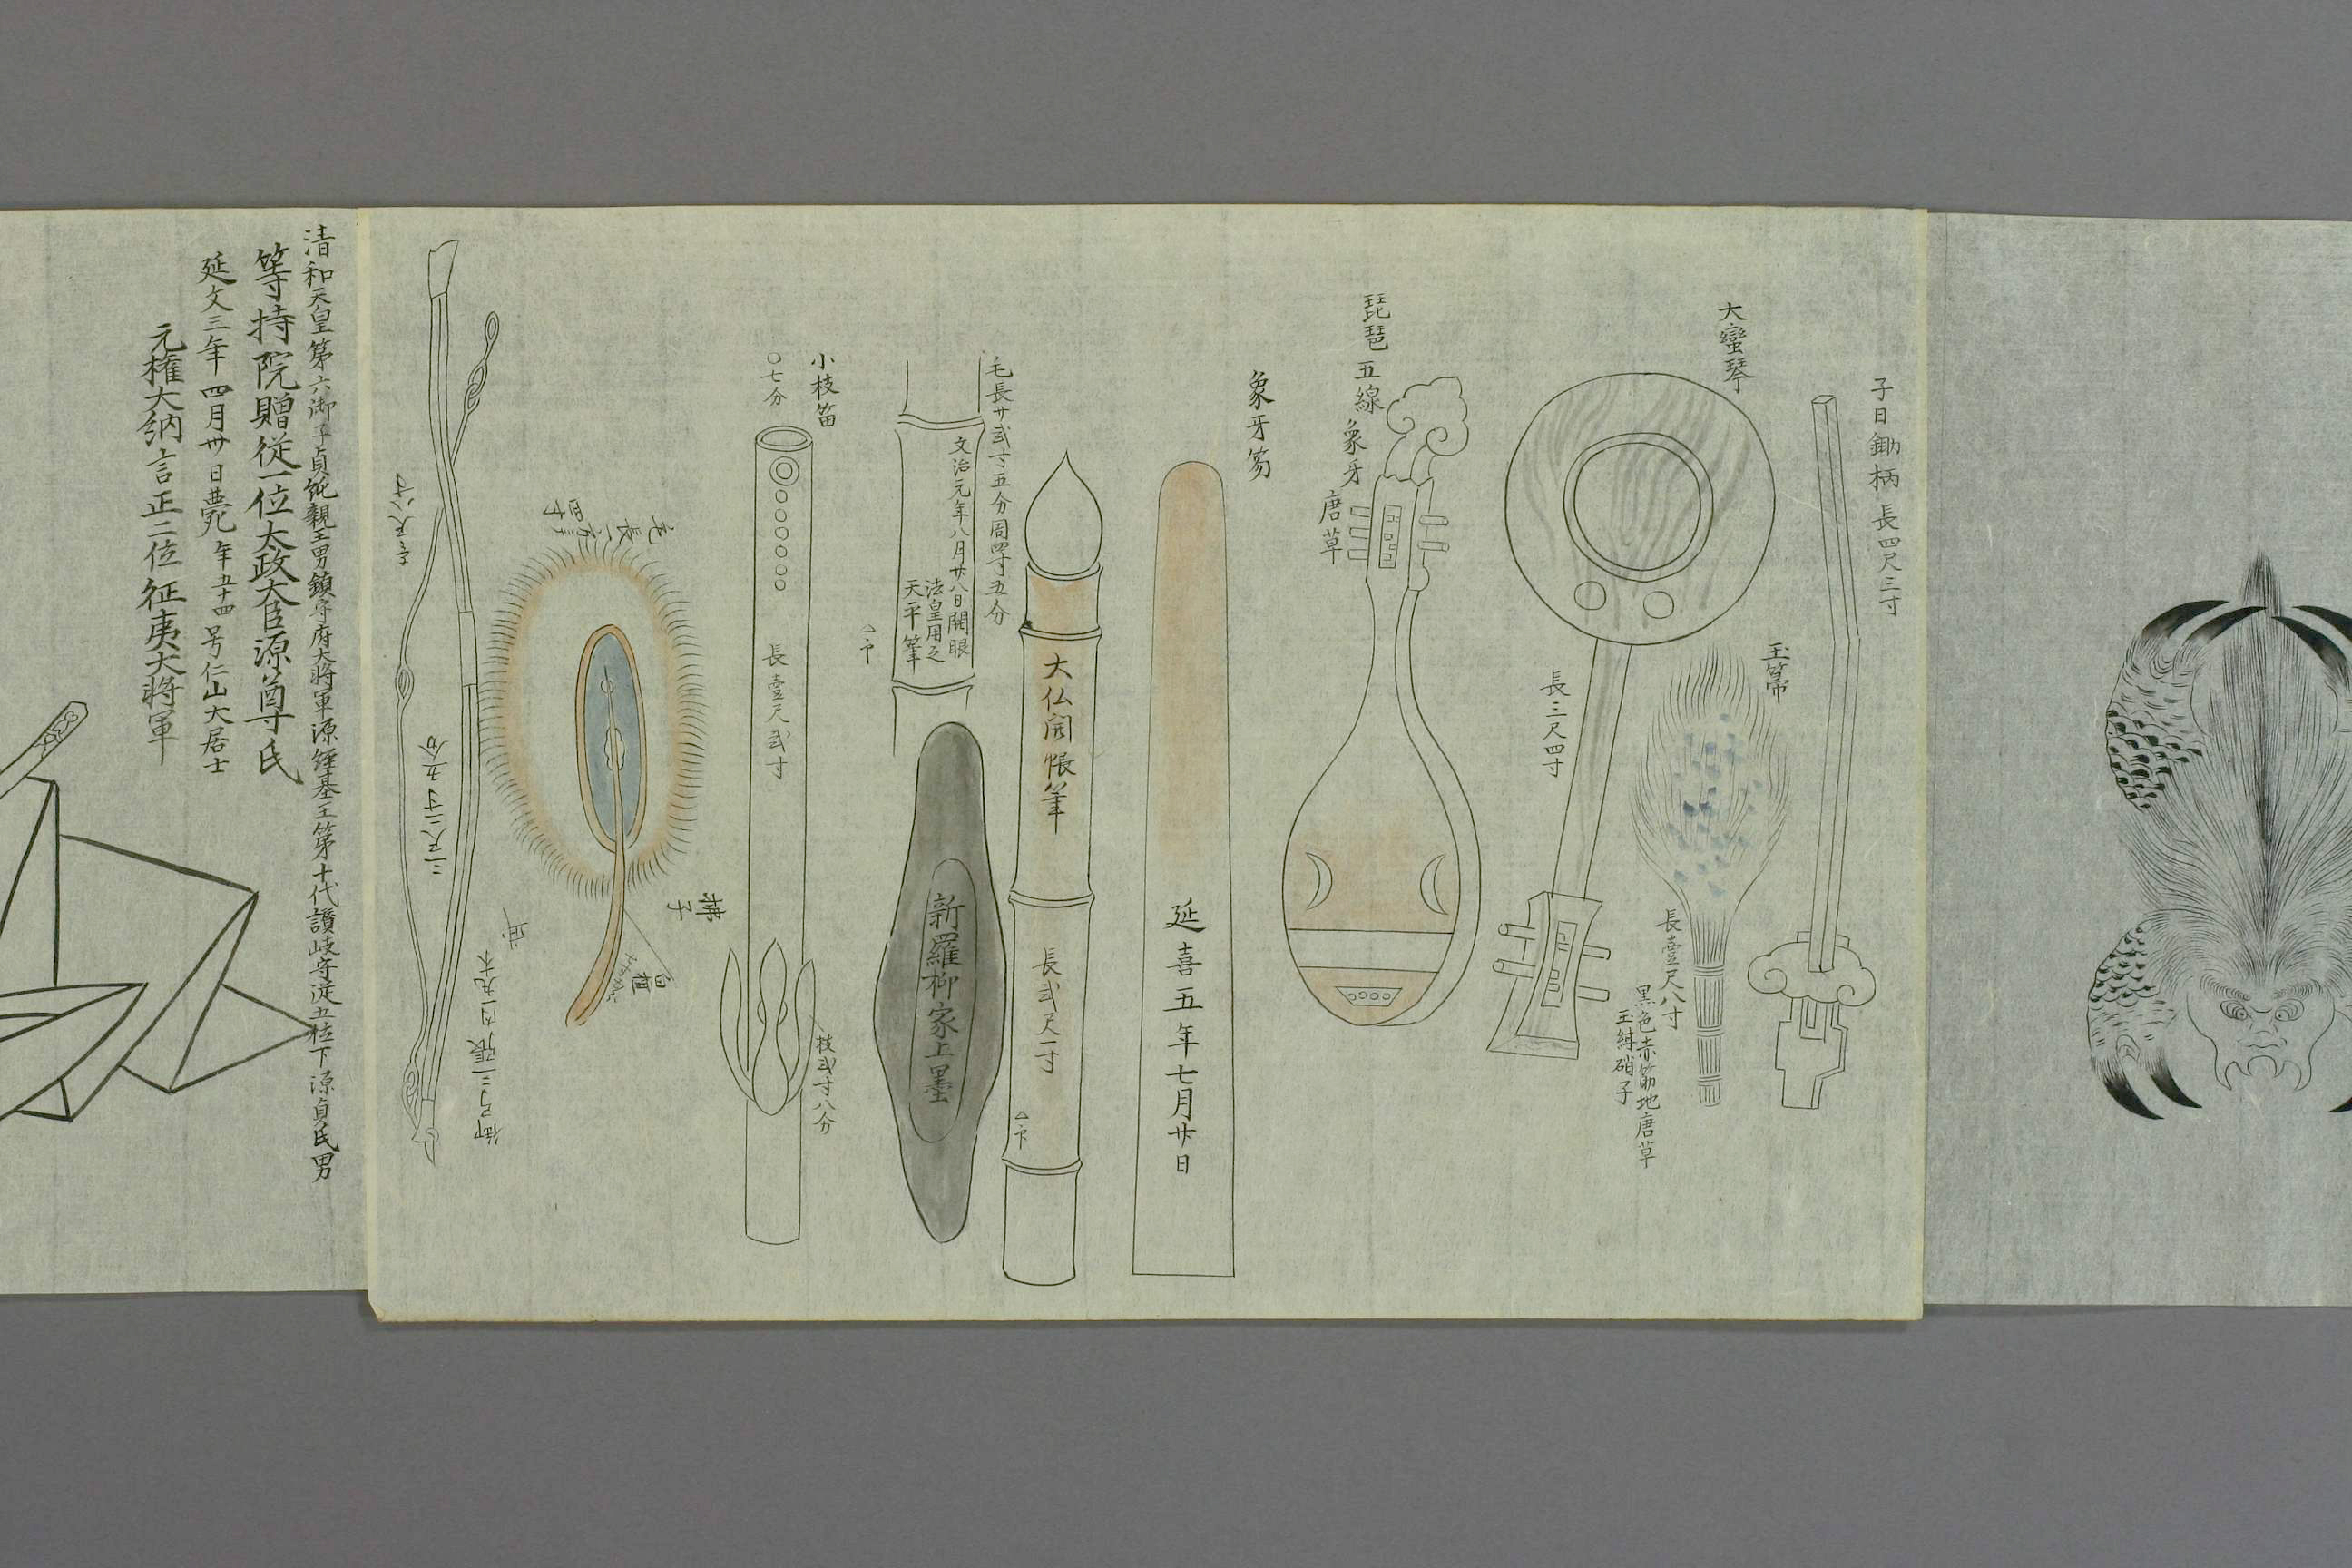 子日鋤柄 長四尺三寸
玉箒
長壹尺八寸
黒色赤筋地唐草
玉緋硝子
大蠻琴
長三尺四寸
琵琶 五線 象牙
唐草
象牙笏
延喜五年七月廿日
毛長廿弐寸五分周四寸五分
大仏開帳筆
長弐尺一寸
文治元年八月廿八日開眼
法皇用之
天平筆
新羅柳家上墨
小枝笛
〇七分
長壹尺弐寸
枝弐寸八分
御弓三張内一九木
三尺二寸五分
壱尺八寸
清和天皇第六御子貞純親王男鎮守府大将軍源経基王第十代讃岐守従五位下源貞氏男
等持院贈従一位太政大臣源尊氏
延文三年四月卅日薨年五十四号仁山大居士
元権大納言正二位征夷大将軍